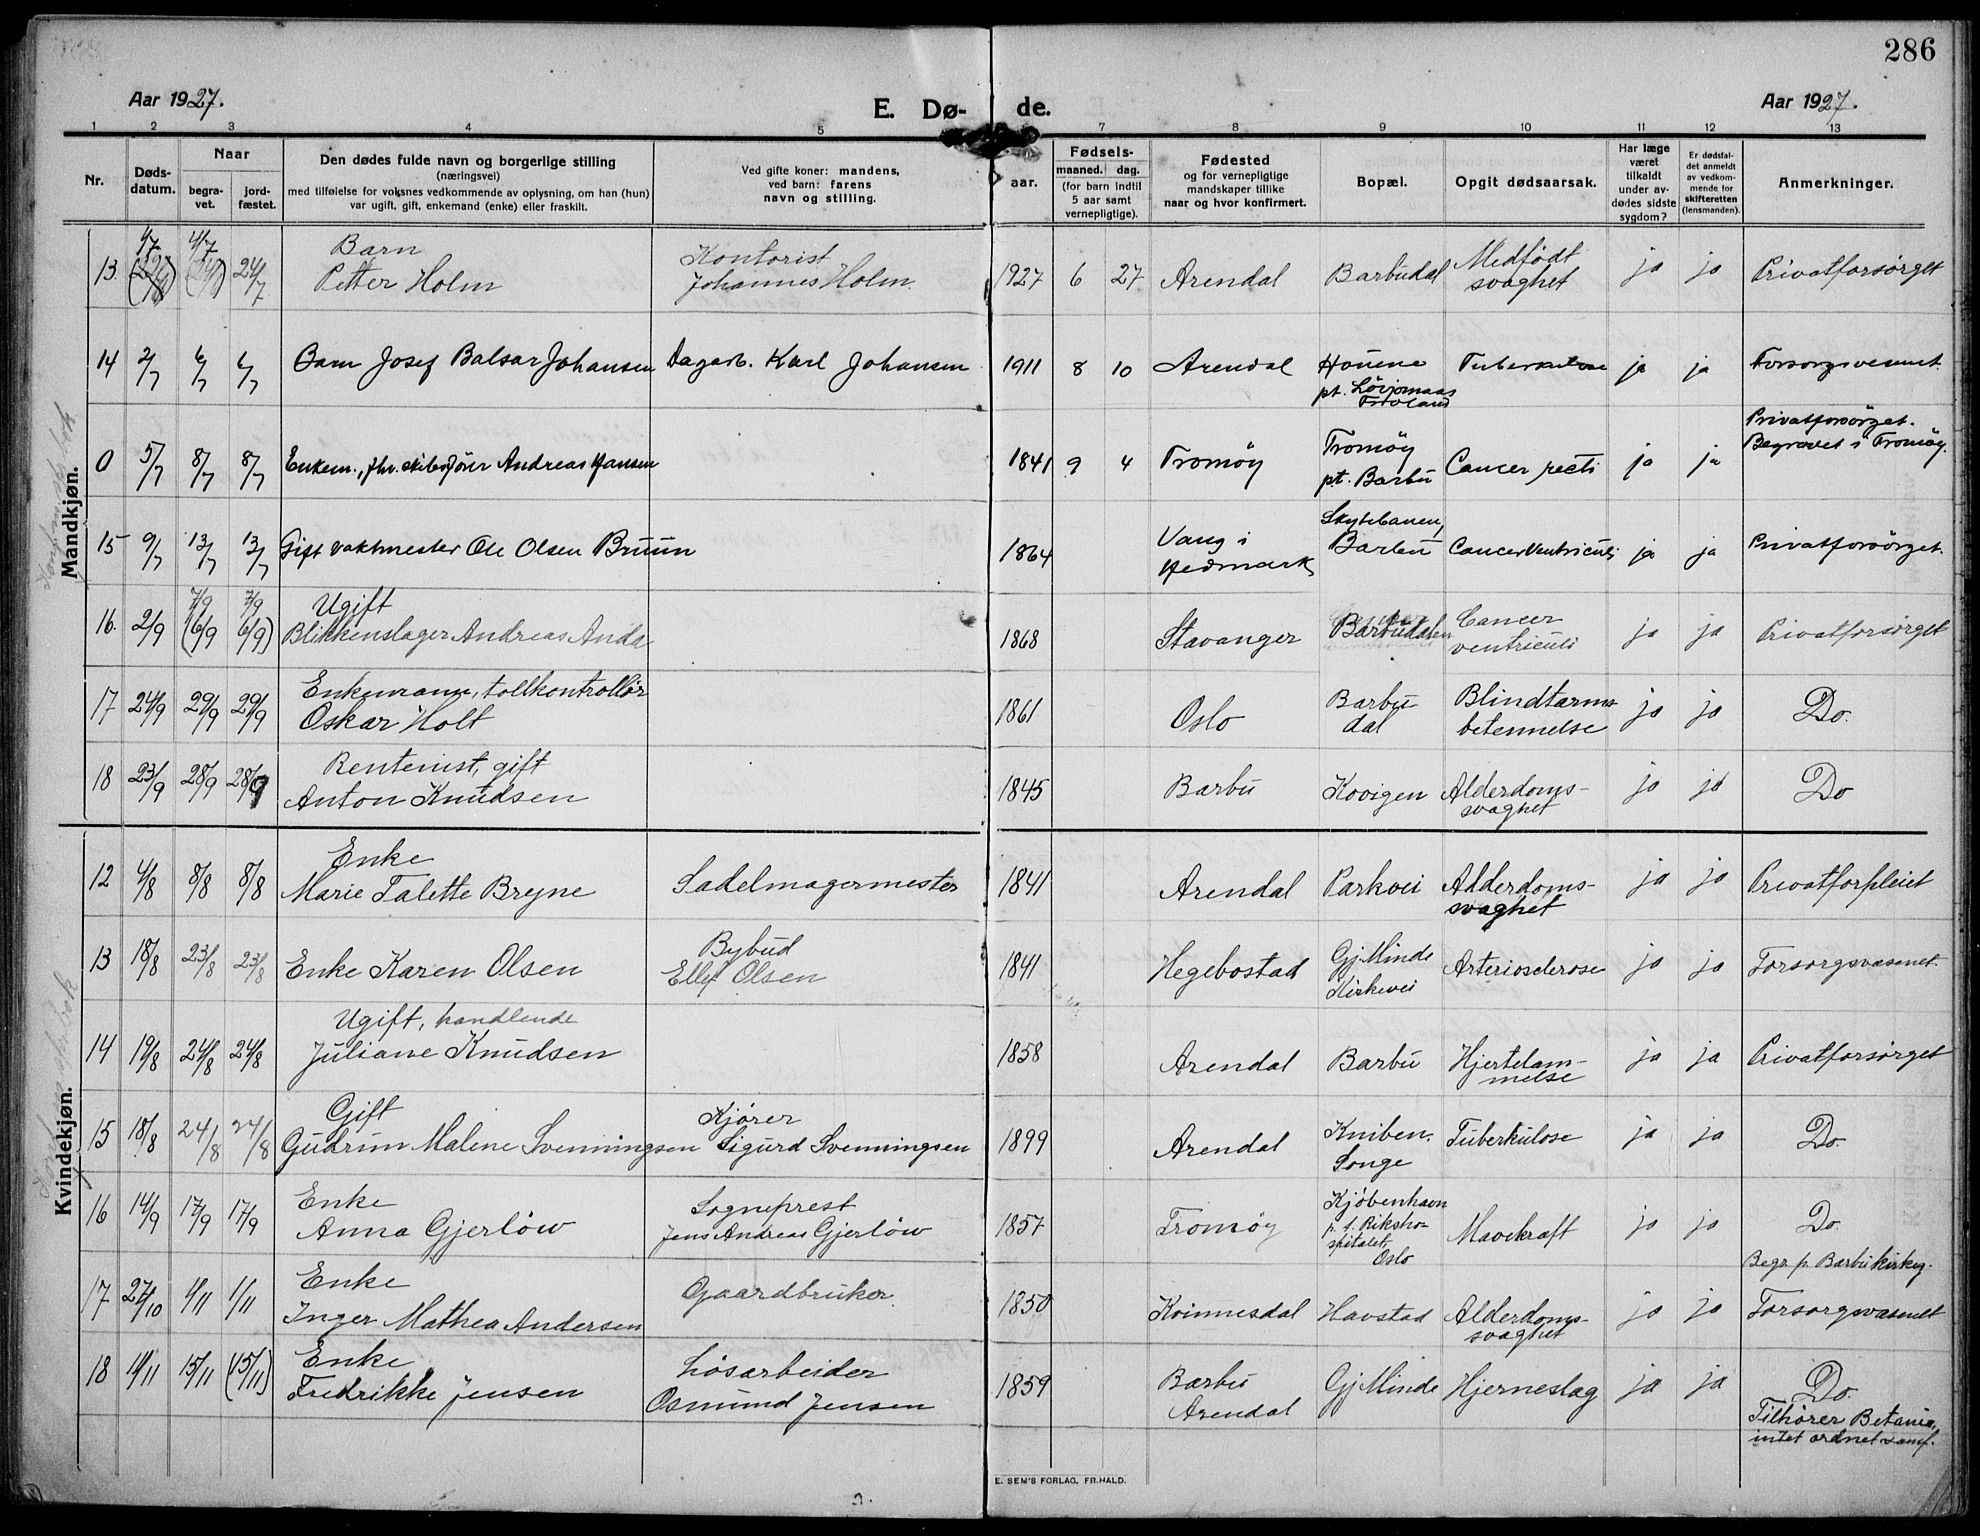 286
Aar 1927. E. Dø- de. Aar 1927.
1 2 3 4 5 7 8 9 10 11 12 13
Nr.
Døds-
datum.
Naar
begra-
vet.
jord-
fæstet.
Den dødes fulde navn og borgerlige stilling
(næringsvei)
med tilføielse for voksnes vedkommende av oplysning, om han (hun)
var ugift, gift, enkemand (enke) eller fraskilt.
Ved gifte koner: mandens,
ved barn: farens
navn og stilling.
aar.
Fødsels-
maaned. dag.
(for barn indtil
5 aar samt
vernepligtige).
Fødested
og for vernepligtige
mandskaper tillike
naar og hvor konfirmert.
Bopæl.
Opgit dødsaarsak.
Har læge
været
tilkaldt
under av-
dødes sidste
sygdom?
Er dødsfal-
det anmeldt
av vedkom-
mende for
skifteretten
(lensmanden).
Anmerkninger.
Mandkjøn.
13. 1/7 4/7 24/7 Barn
Petter Holm
Kontorist
Johannes Holm.
1927 6 27 Arendal Barbudal Medfødt
svaghet
ja ja Privatforsørget
14 2/7 6/7 6/7 Barn Josef Balsar Johansen Dagarb. Karl Johansen 1911 8 10 Arendal Houene
pt.
Froland
Tuberkulose ja ja Forsorgsvesenet.
0 5/7 8/7 8/7 Enkem., fhv. skibsfører Andreas Hansen 1841 9 4 Tromøy Tromøy
pt. Barbu
Cancer recti ja ja Privatforsørget.
Begravet i Tromøy.
15 9/7 13/7 13/7 Gift vaktmester Ole Olsen Bruun 1864 Vang i
Hedmark
Skytebanen,
Barbu
Cancer Ventriculi ja ja Privatforsørget.
16. 2/9 7/9 (6/9 7/9 6/9) Ugift
Blikkenslager Andreas Anda
1868 Stavanger Barbudalen Cancer
ventriculi
ja ja Privatforsørget
17 24/9 29/9 29/9 Enkemann, tollkontrollør
Oskar Holt
1861 Oslo Barbu
dal
Blindtarms-
betennelse
ja ja Do.
18 23/9 28/9 28/9 Rentenist, gift
Anton Knudsen
1845 Barbu Kovigen Alderdoms-
svaghet
ja ja Do
Kvindekjøn.
12 4/8 8/8 8/8 Enke
Marie Talette Bryne
Sadelmagermester 1841 Arendal Parkvei Alderdoms-
svaghet
ja ja Privatforpleiet
13 18/8 23/8 23/8 Enke Karen Olsen Bybud
Ellef Olsen
1841 Hegebostad Gj. Minde
Kirkevei
Arteriosclerose ja ja Forsorgsvæsenet.
14 19/8 24/8 24/8 Ugift, handlende
Juliane Knudsen
1858 Arendal Barbu Hjertelam-
melse
ja ja Privatforsørget
15 18/8 24/8 24/8 Gift
Gudrun Malene Svenningsen
Kjører
Sigurd Svenningsen
1899 Arendal Kniben.
Songe
Tuberkulose ja ja Do.
16 14/9 17/9 17/9 Enke
Anna Gjerløw
Sogneprest
Jens Andreas Gjerløw
1857 Tromøy Kjøbenhavn
p. t. Riksho-
spitalet,
Oslo
Mavekræft ja ja Do.
Begr. p. Barbu kirkeg.
17 27/10 1/11 1/11 Enke
Inger Mathea Andersen
Gaardbruker 1850 Kvinnesdal Havstad Alderdoms-
svaghet
ja ja Forsorgsvæsenet
18 11/11 15/11 (15/11) Enke
Fredrikke Jensen
Løsarbeider
Osmund Jensen
1859 Barbu
Arendal
Gj. Minde Hjerneslag ja ja Do.
Tilhører Betania,
intet ordnet samf.
E. SEM'S FORLAG, FR.HALD.